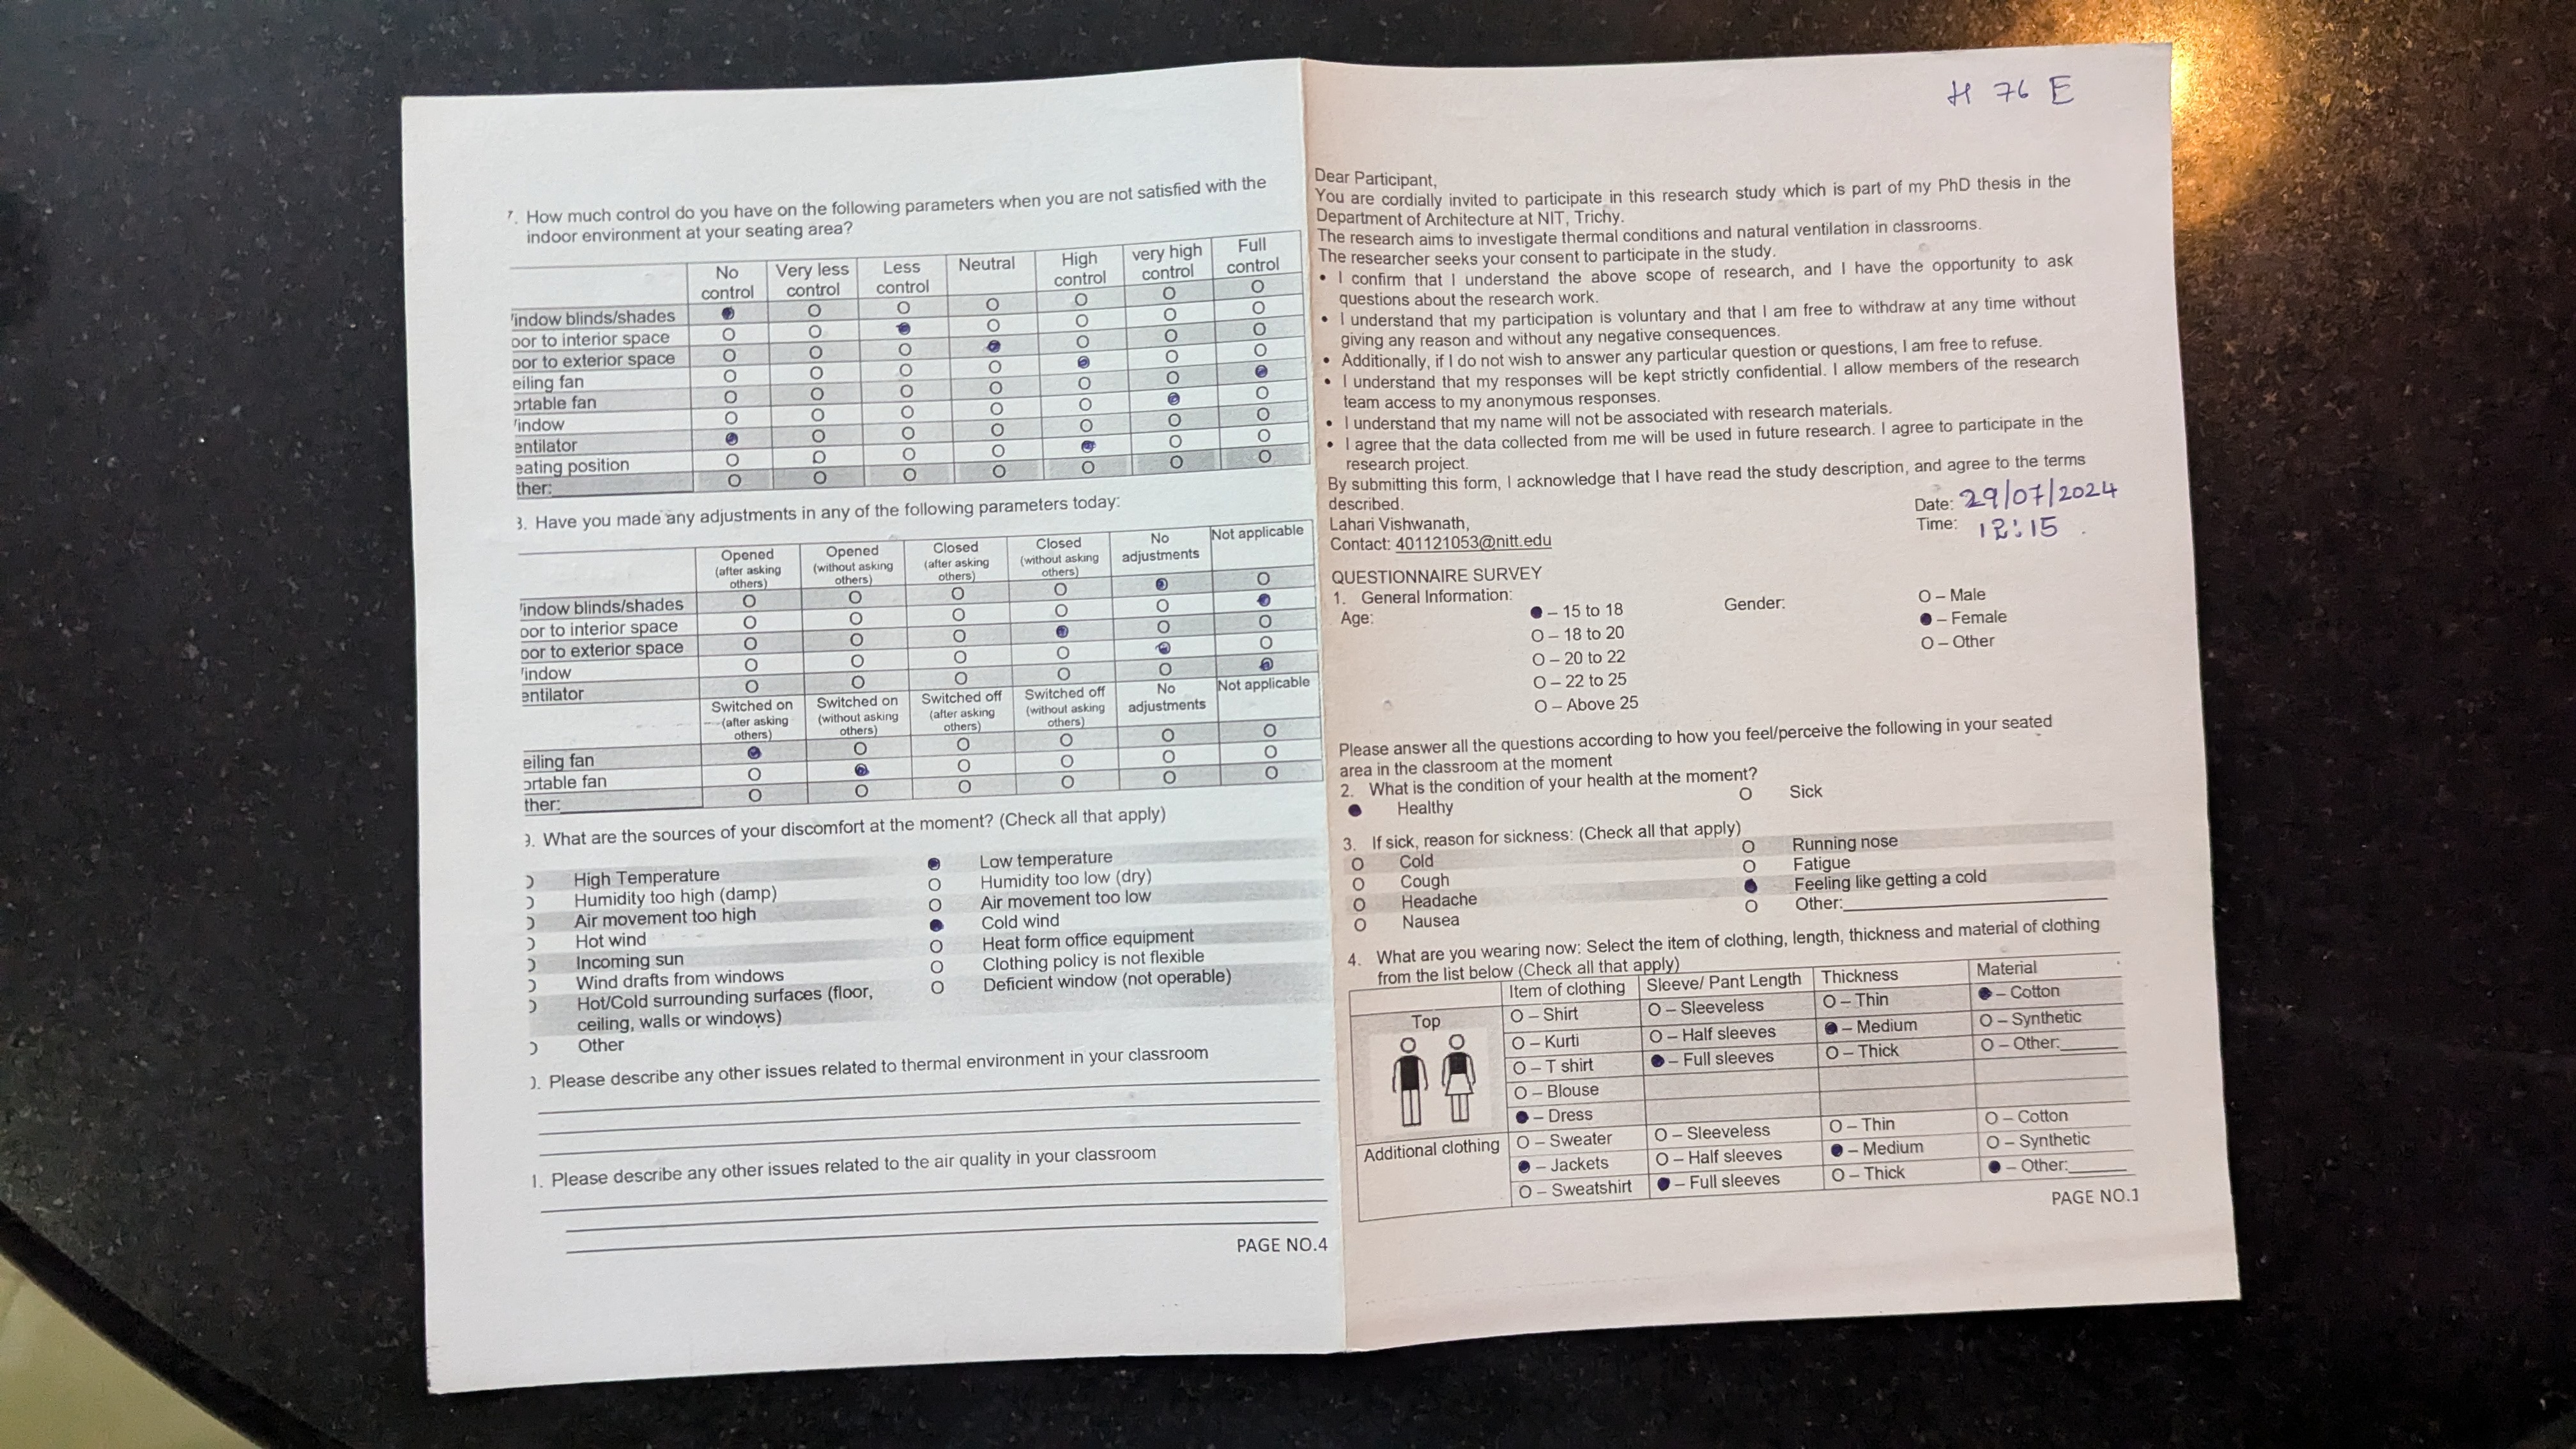 7. How much control do you have on the following parameters when you are not satisfied with the
indoor environment at your seating area?
No control Very less control Less control Neutral High control very high control Full control
indow blinds/shades ● O O O O O O
oor to interior space O O ● O O O O
oor to exterior space O O O ● O O O
eiling fan O O O O ● O O
ortable fan O O O O O O ●
indow O O O O O ● O
entilator ● O O O O O O
eating position O O O O ● O O
ther: O O O O O O O
3. Have you made any adjustments in any of the following parameters today:
Opened (after asking others) Opened (without asking others) Closed (after asking others) Closed (without asking others) No adjustments Not applicable
indow blinds/shades O O O O ● O
oor to interior space O O O O O ●
oor to exterior space O O O ● O O
indow O O O O ● O
entilator O O O O O ●
Switched on (after asking others) Switched on (without asking others) Switched off (after asking others) Switched off (without asking others) No adjustments Not applicable
eiling fan ● O O O O O
ortable fan O ● O O O O
ther: O O O O O O
9. What are the sources of your discomfort at the moment? (Check all that apply)
High Temperature ● Low temperature
Humidity too high (damp) O Humidity too low (dry)
Air movement too high O Air movement too low
Hot wind ● Cold wind
Incoming sun O Heat form office equipment
Wind drafts from windows O Clothing policy is not flexible
Hot/Cold surrounding surfaces (floor, O Deficient window (not operable)
ceiling, walls or windows)
Other
). Please describe any other issues related to thermal environment in your classroom
1. Please describe any other issues related to the air quality in your classroom
PAGE NO.4
H 76 E
Dear Participant,
You are cordially invited to participate in this research study which is part of my PhD thesis in the
Department of Architecture at NIT, Trichy.
The research aims to investigate thermal conditions and natural ventilation in classrooms.
The researcher seeks your consent to participate in the study.
• I confirm that I understand the above scope of research, and I have the opportunity to ask
questions about the research work.
• I understand that my participation is voluntary and that I am free to withdraw at any time without
giving any reason and without any negative consequences.
• Additionally, if I do not wish to answer any particular question or questions, I am free to refuse.
• I understand that my responses will be kept strictly confidential. I allow members of the research
team access to my anonymous responses.
• I understand that my name will not be associated with research materials.
• I agree that the data collected from me will be used in future research. I agree to participate in the
research project.
By submitting this form, I acknowledge that I have read the study description, and agree to the terms
described.
Date: 29/07/2024
Lahari Vishwanath,
Time: 12:15
Contact: 401121053@nitt.edu
QUESTIONNAIRE SURVEY
1. General Information:
Age: ● – 15 to 18 Gender: O – Male
O – 18 to 20 ● – Female
O – 20 to 22 O – Other
O – 22 to 25
O – Above 25
Please answer all the questions according to how you feel/perceive the following in your seated
area in the classroom at the moment
2. What is the condition of your health at the moment?
● Healthy O Sick
3. If sick, reason for sickness: (Check all that apply)
O Cold O Running nose
O Cough O Fatigue
O Headache ● Feeling like getting a cold
O Nausea O Other:
4. What are you wearing now: Select the item of clothing, length, thickness and material of clothing
from the list below (Check all that apply)
Item of clothing Sleeve/ Pant Length Thickness Material
Top O – Shirt O – Sleeveless O – Thin ● – Cotton
O – Kurti O – Half sleeves ● – Medium O – Synthetic
O – T shirt ● – Full sleeves O – Thick O – Other:
O – Blouse
● – Dress
Additional clothing O – Sweater O – Sleeveless O – Thin O – Cotton
● – Jackets O – Half sleeves ● – Medium O – Synthetic
O – Sweatshirt ● – Full sleeves O – Thick ● – Other:
PAGE NO.1